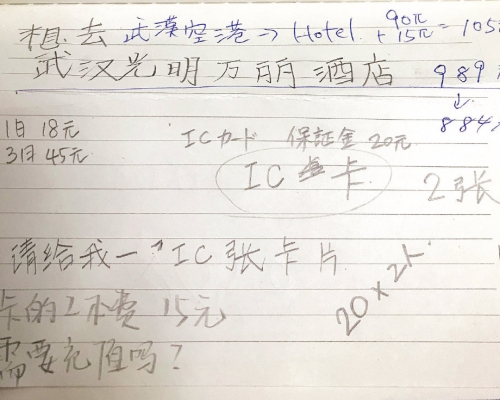 想去 武漢空港→Hotel. 90元 + 15元 = 105
武汉光明万丽酒店 989
↓
884
1日 18元
3日 45元
ICカード 保証金 20元
IC 卡
2张
请给我一 IC 张卡片
20×2人
卡的工本费 15元
需要充值吗?